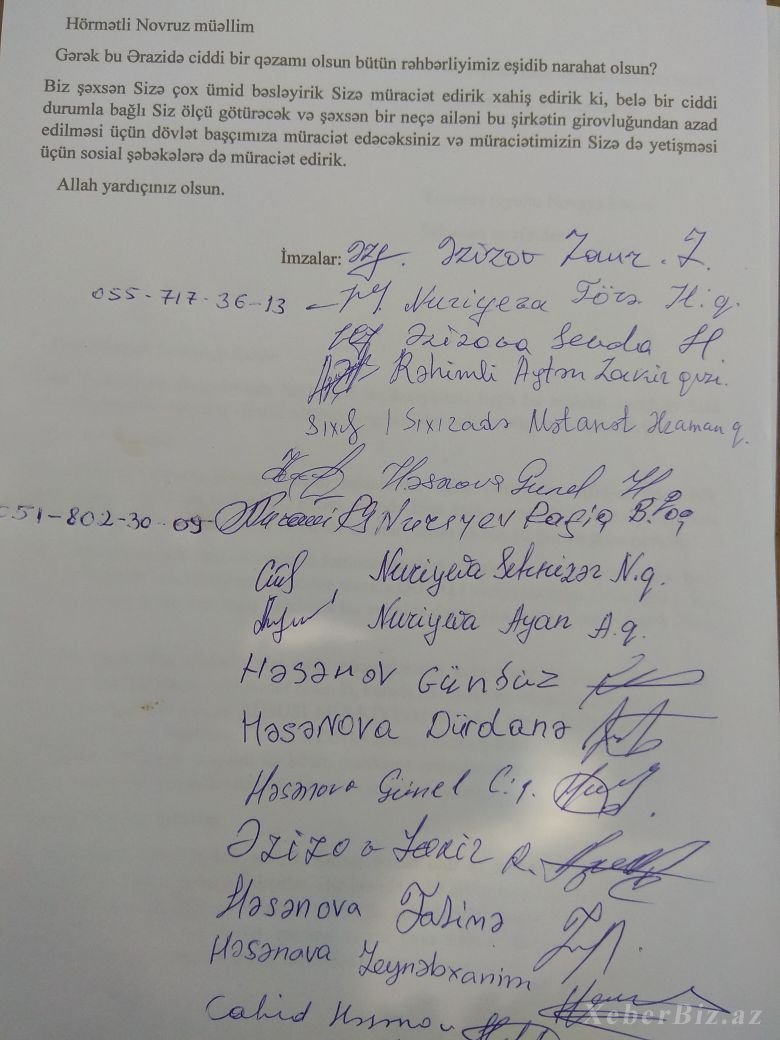 Hörmətli Novruz müəllim
Gərək bu Ərazidə ciddi bir qəzamı olsun bütün rəhbərliyimiz eşidib narahat olsun?
Biz şəxsən Sizə çox ümid bəsləyirik Sizə müraciət edirik xahiş edirik ki, belə bir ciddi
durumla bağlı Siz ölçü götürəcək və şəxsən bir neçə ailəni bu şirkətin girovluğundan azad
edilməsi üçün dövlət başçımıza müraciət edəcəksiniz və müraciətimizin Sizə də yetişməsi
üçün sosial şəbəkələrə də müraciət edirik.
Allah yardıçınız olsun.
İmzalar: Əzizov Zaur. Z.
055-717-36-13 Nuriyeva Törə H.q.
Əzizova Sevda H.
Rəhimli Aytən Zakir qızı.
Sıxızadə Mətanət q.
Həsnova Gunel H.
51-802-30-09 Nureyev Rafiq B.
Nuriyeva N.q.
Nuriyeva Ayan A.q.
Həsənov Gündüz
HəsəNova Dürdanə
Həsənova Günel C.q.
Əzizov R.
Həsənova Fatimə
Həsənova Zeynəbxanim
Cahid
XeberBiz.az